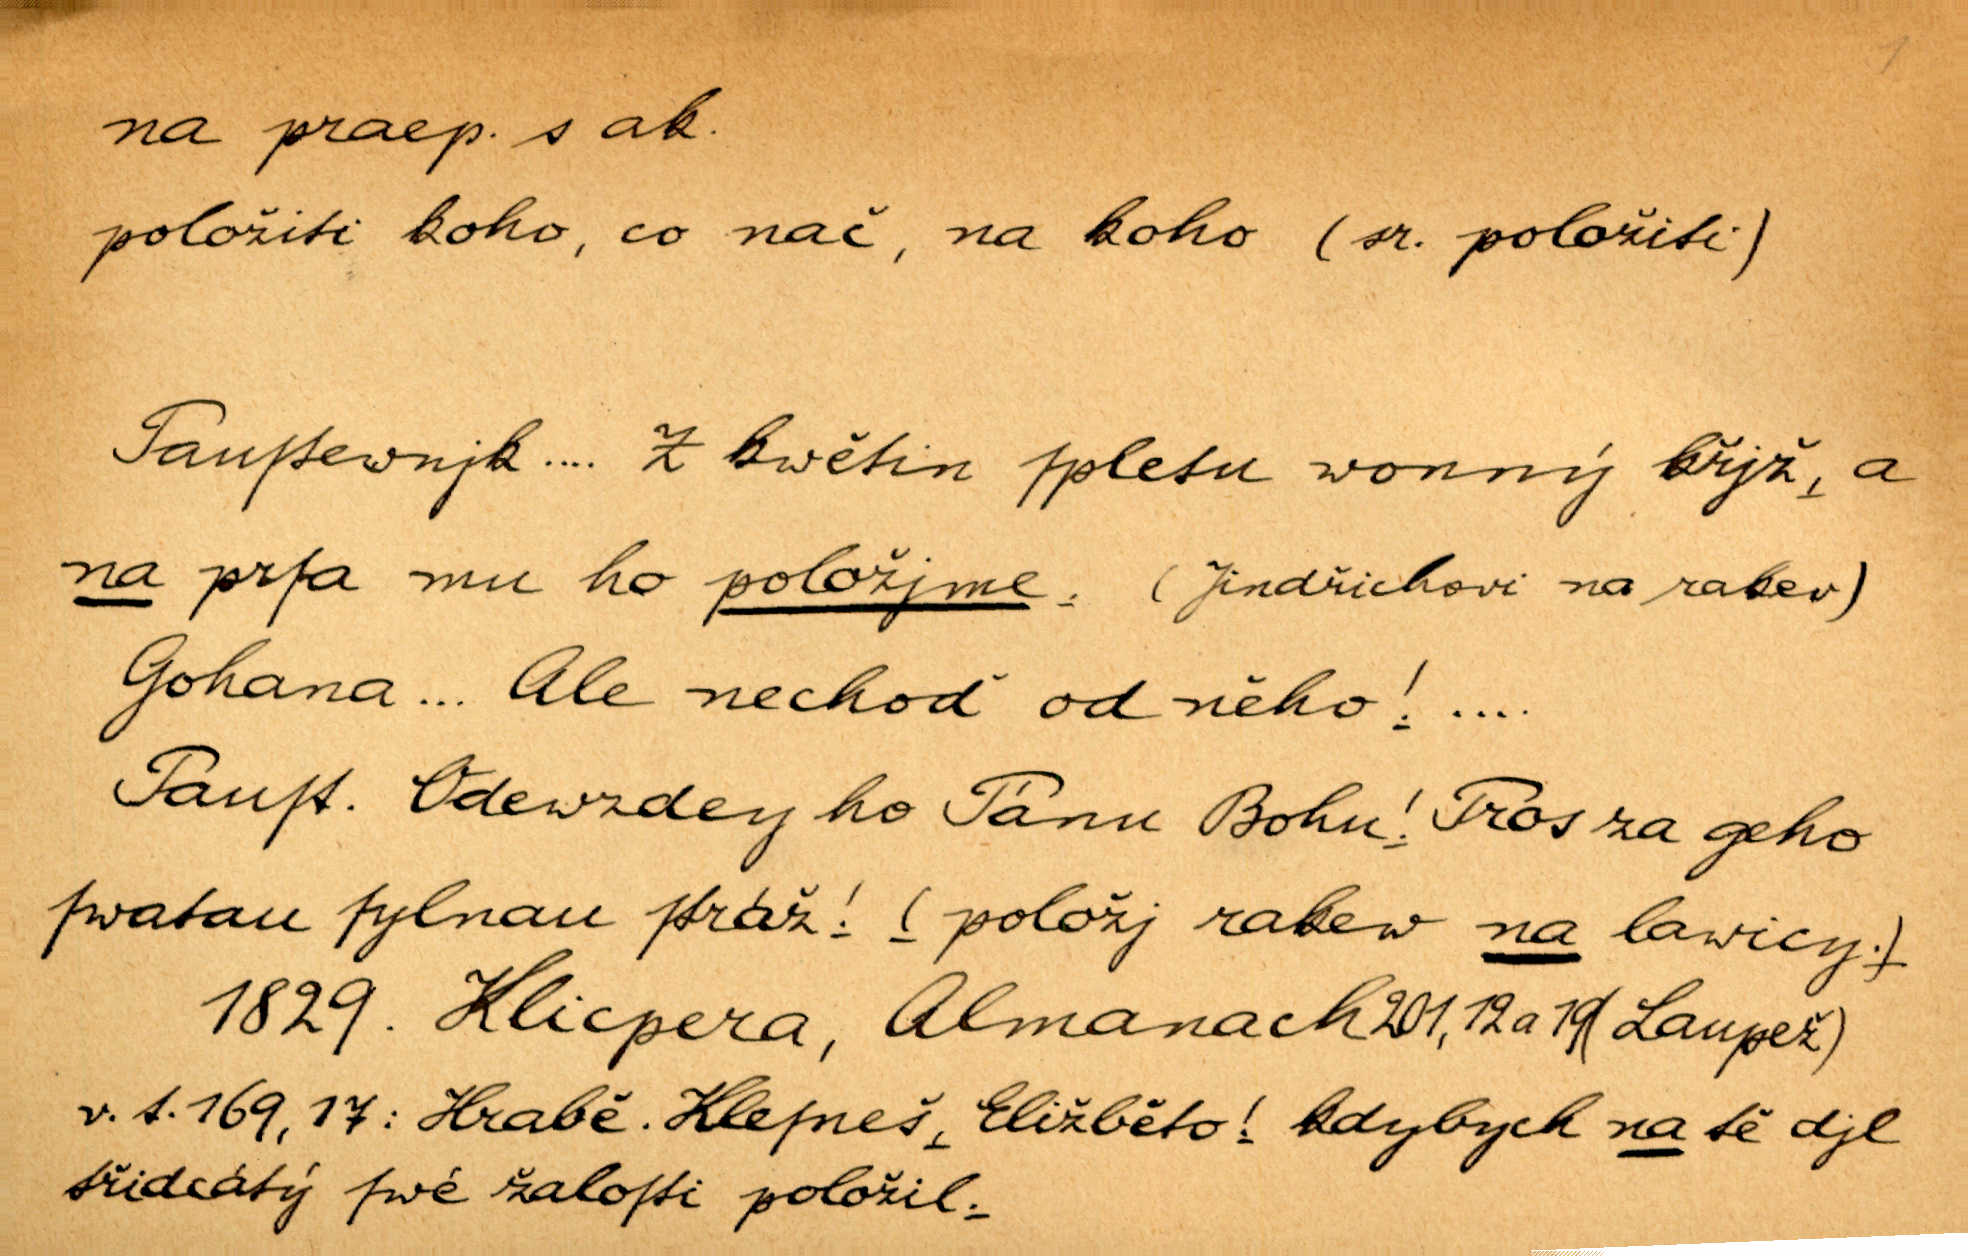 na praep. s ak.
položiti koho, co nač, na koho (sr. položiti)
Pauſtewnjk .... Z kwětin ſpletu wonný křjž, a
na prſa mu ho položjme. (Jindřichovi na rakev)
Gohana ... Ale nechoď od něho! ....
Pauſt. Odewzdey ho Pánu Bohu! Pros za geho
ſwatau ſylnau ſtráž! (položj rakew na lawicy.)
1829. Klicpera, Almanach 201, 12 a 19 (Laupež)
v. t. 169, 17: Hrabě. Kleſneš, Eližběto! kdybych na tě djl
třidcátý ſwé žaloſti položil.